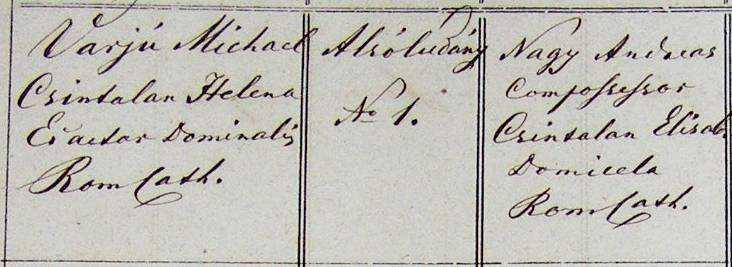 Varjú Michael
Csintalan Helena
Exactor Dominalis
Rom Cath.
Alsóludány
No 1.
Nagy Andreas
Compossessor
Csintalan Elisab.
Domicela
Rom Cath.